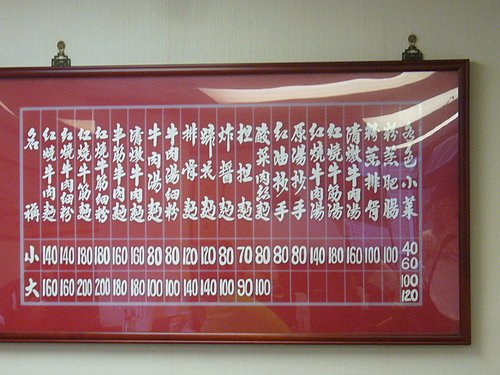 名稱 小 大
紅燒牛肉麵 140 160
紅燒牛肉細粉 140 160
紅燒牛筋麵 180 200
紅燒牛筋細粉 180 200
半筋半肉麵 160 180
清燉牛肉麵 160 180
牛肉湯麵 80 100
牛肉湯細粉 80 100
排骨麵 120 140
蹄花麵 120 140
炸醬麵 80 100
担担麵 70 90
酸菜肉絲麵 80 100
紅油抄手 80
原湯抄手 80
紅燒牛肉湯 140
紅燒牛筋湯 180
清燉牛肉湯 160
粉蒸排骨 100
粉蒸肥腸 100
各色小菜 40 60 100 120